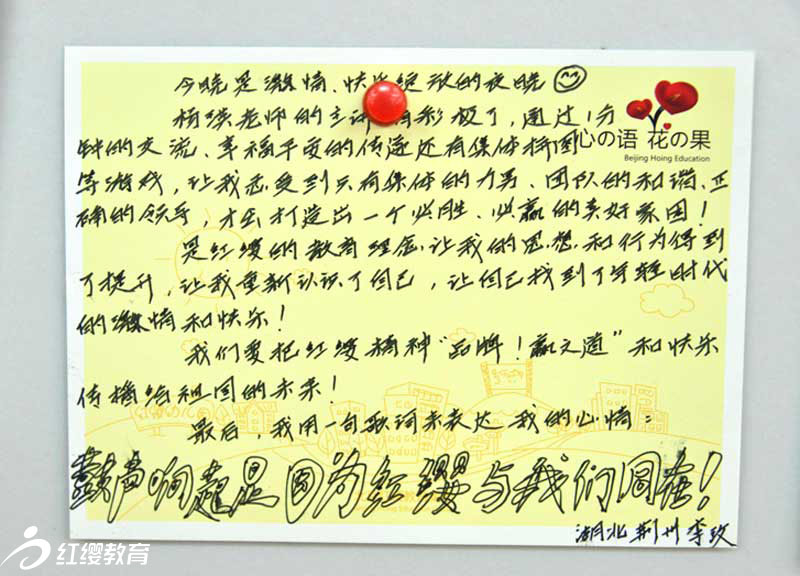 今晚是激情、快乐绽放的夜晚
杨瑛老师的主讲精彩极了，通过1分
钟的交流、幸福千度的传递还有集体拼图
等游戏，让我感受到只有集体的力量、团队的和谐、正
确的领导，才会打造出一个必胜、必赢的美好家园！
是红缨的教育理念让我的思想和行为得到
了提升，让我重新认识了自己，让自己找到了年轻时代
的激情和快乐！
我们要把红缨精神“品牌！赢之道”和快乐
传播给祖国的未来！
最后，我用一句歌词来表达我的心情：
鼓声响起是因为红缨与我们同在！
湖北荆州 李玫
心の语 花の果
Beijing Hoing Education
红缨教育